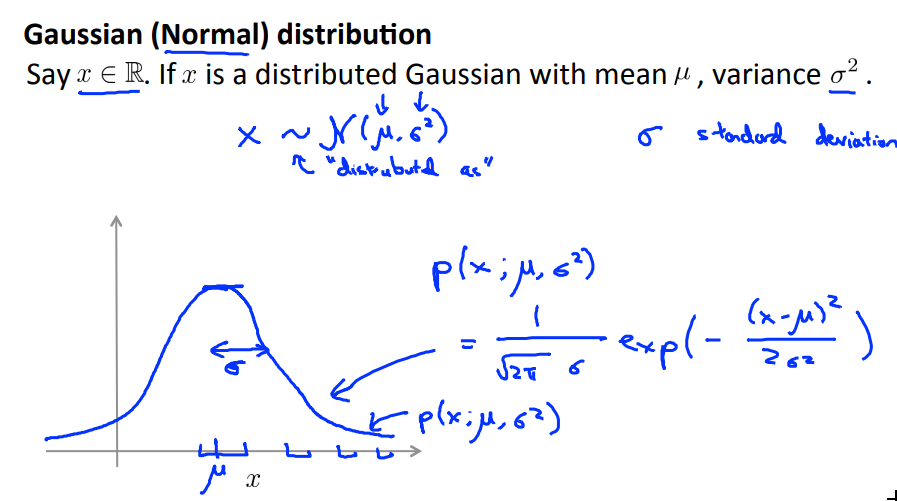 Gaussian (Normal) distribution
Say x ∈ ℝ. If x is a distributed Gaussian with mean μ , variance σ² .
x ~ N(μ, σ²)
σ standard deviation
"distributed as"
p(x; μ, σ²)
= 1/(√2π σ) exp(- (x-μ)²/2σ²)
σ
p(x; μ, σ²)
μ x